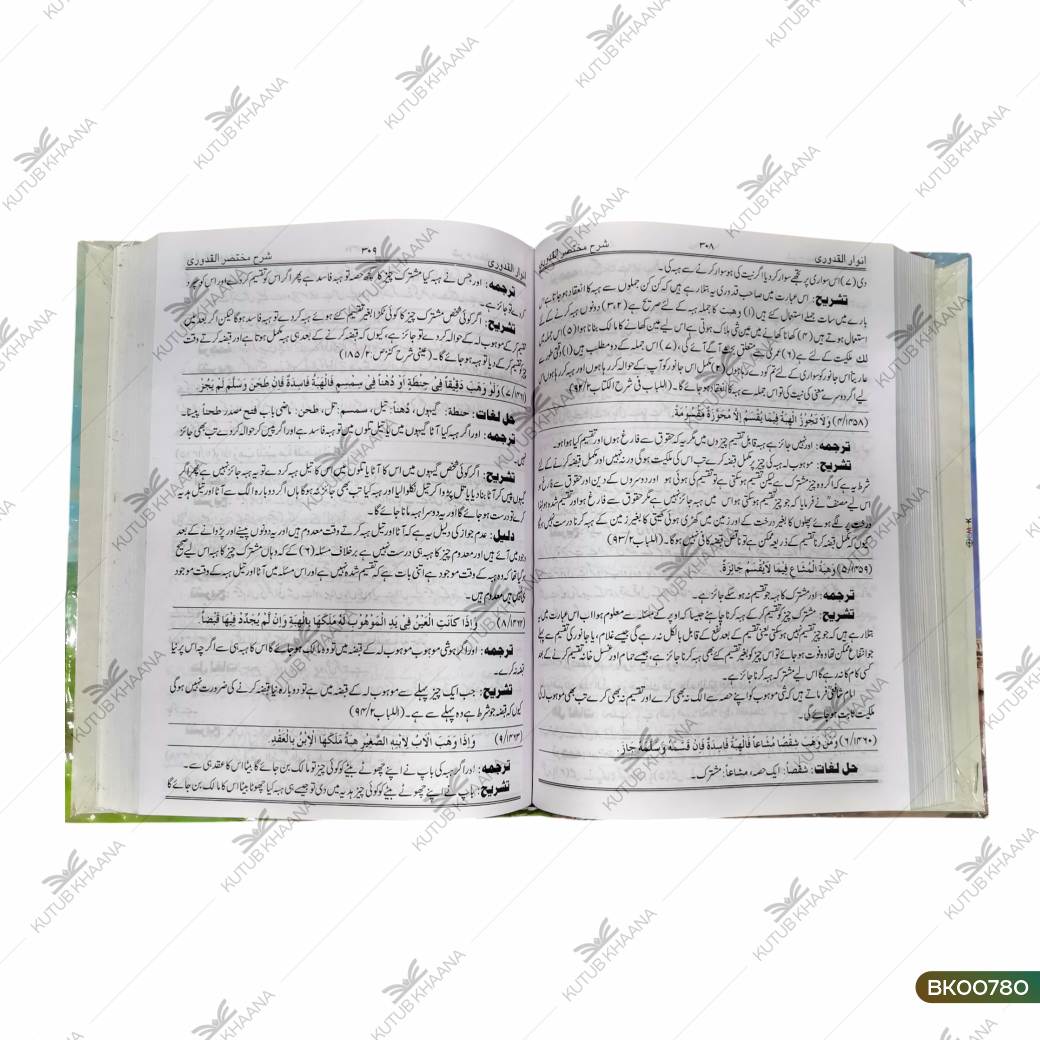 انوار القدوری ۳۰۸ شرح مختصر القدوری
دی (۷) اس سواری پر تجھے سوار کر دیا اگر نیت کی ہو سوار کرنے سے ہبہ کی۔
تشریح: اس عبارت میں صاحب قدوری یہ بتلا رہے ہیں کہ کن کن جملوں سے ہبہ کا انعقاد ہو جاتا ہے اس
بارے میں سات جملے استعمال کئے ہیں (۱) وھبت کا جملہ ہبہ کے لئے صریح ہے (۳،۲) دونوں ہبہ کرنے کے لئے
استعمال ہوتے ہیں (۴) کھانا کھانے میں عین شی ہلاک ہوتی ہے اس لیے عین کھانے کا مالک بنانا ہوا (۵) اس جملہ میں
لك ملکیت کے لئے ہے (۶) عمری سے متعلق بحث آگے آئے گی، (۷) اس جملہ کے دو مطلب ہیں (۱) وقتی طور پر
عاریتاً اس جانور کو سواری کے لئے تم کو دے رہا ہوں (۲) مکمل اس جانور کو آپ کے حوالہ کر رہا ہوں اور ہبہ کر رہا ہوں اس
لیے اگر دوسرے معنی کی نیت کی تو اس جملہ سے ہبہ کا انعقاد ہو جائے گا۔ (اللباب فی شرح الکتاب ۹۲/۲)
(۴/۱۴۵۸) وَلَا تَجُوْزُ الْهِبَةُ فِيْمَا يُقْسَمُ اِلَّا مُحَوَّزَةً مَقْسُوْمَةً.
ترجمہ: اور نہیں جائز ہے ہبہ قابل تقسیم چیزوں میں مگر یہ کہ حقوق سے فارغ ہوں اور تقسیم کیا ہوا ہو۔
تشریح: موہوب لہ ہبہ کی چیز پر مکمل قبضہ کرے تب اس کی ملکیت ہوگی ورنہ نہیں اور مکمل قبضہ کرنے کے لئے
شرط یہ ہے کہ اگر وہ چیز مشترک ہے لیکن تقسیم ہو سکتی ہے تو تقسیم کی ہوئی ہو اور دوسروں کے دین اور حقوق سے فارغ ہو
اس لیے مصنف نے فرمایا کہ جو چیز تقسیم ہو سکتی ہو اس میں ہبہ جائز نہیں ہے مگر حقوق سے فارغ ہو اور تقسیم شدہ ہو لہٰذا
درخت پر لگے ہوئے پھلوں کا بغیر درخت کے اور زمین میں کھڑی ہوئی کھیتی کا بغیر زمین کے ہبہ کرنا درست نہیں ہوگا
کیوں کہ مکمل قبضہ کرنا تقسیم کے ذریعہ ممکن ہے تو ناقص قبضہ کافی نہیں ہوگا۔ (اللباب ۹۳/۲)
(۵/۱۴۵۹) وَهِبَةُ الْمُشَاعِ فِيْمَا لَايُقْسَمُ جَائِزَةٌ.
ترجمہ: اور مشترک کا ہبہ جو تقسیم نہ ہو سکے جائز ہے۔
تشریح: مشترک چیز کو تقسیم کر کے ہبہ کرنا چاہئے جیسا کہ اوپر کے مسئلہ سے معلوم ہوا اب اس عبارت میں یہ
بتلا رہے ہیں کہ جو چیز تقسیم نہیں ہو سکتی یعنی تقسیم کے بعد نفع کے قابل بالکل نہ رہے گی جیسے غلام، یا جانور کی تقسیم سے پہلے
جو انتفاع ممکن تھا وہ فوت ہو جائے تو اس چیز کو بغیر تقسیم کئے بھی ہبہ کرنا جائز ہے، جیسے حمام اور غسل خانہ تقسیم کرنے کے بعد
کسی کام کا نہ رہے گا اس لیے مشترک ہبہ کرنا جائز ہے۔
امام شافعی فرماتے ہیں کہ شی موہوب کو اپنے حصہ سے الگ نہ بھی کرے اور تقسیم نہ بھی کرے تب بھی موہوب لہ کی
ملکیت ثابت ہو جائے گی۔
(۶/۱۴۶۰) وَمَنْ وَهَبَ شِقْصًا مُشَاعًا فَالْهِبَةُ فَاسِدَةٌ فَاِنْ قَسَمَهُ وَسَلَّمَهُ جَازَ.
حل لغات: شقصاً: ایک حصہ، مشاعاً: مشترک۔
انوار القدوری ۳۰۹ شرح مختصر القدوری
ترجمہ: اور جس نے ہبہ کیا مشترک چیز کا کچھ حصہ تو ہبہ فاسد ہے پھر اگر اس کو تقسیم کر دے اور اس کو سپرد
کر دے تو جائز ہے۔
تشریح: اگر کوئی شخص مشترک چیز کا کوئی ٹکڑا بغیر تقسیم کئے ہوئے ہبہ کر دے تو ہبہ فاسد ہوگا لیکن اگر بعد میں
تقسیم کر کے موہوب لہ کے حوالہ کر دے تو جائز ہے، کیوں کہ قبضہ کرنے کے بعد ہی ہبہ مکمل ہوتا ہے اور قبضہ کرتے وقت
چیز تقسیم کر دیا تو ہبہ ہو جائے گا۔ (عینی شرح کنز ص ۱۸۵/۳)
(۷/۱۴۶۱) وَلَوْ وَهَبَ دَقِيْقًا فِي حِنْطَةٍ اَوْ دُهْنًا فِي سِمْسِمٍ فَالْهِبَةُ فَاسِدَةٌ فَاِنْ طَحَنَ وَسَلَّمَ لَمْ يَجُزْ.
حل لغات: حنطة: گیہوں، دُهناً: تیل، سمسم: تل، طحن: ماضی باب فتح مصدر طحناً پیسنا۔
ترجمہ: اور اگر ہبہ کیا آٹا گیہوں میں یا تیل تلوں میں تو ہبہ فاسد ہے اور اگر پیس کر حوالہ کر دے تب بھی جائز
نہیں۔
تشریح: اگر کوئی شخص گیہوں میں اس کا آٹا یا تلوں میں اس کا تیل ہبہ کر دے تو یہ ہبہ جائز نہیں ہے پھر اگر
گیہوں پیس کر آٹا بنا دیا یا تل پڑوا کر تیل نکلوا لیا اور ہبہ کیا تب بھی جائز نہ ہوگا ہاں اگر دوبارہ الگ سے آٹا اور تیل ہدیہ
کرے تو درست ہو جائے گا اور یہ دوسرا ہبہ مانا جائے گا۔
دلیل: عدم جواز کی دلیل یہ ہے کہ آٹا اور تیل ہبہ کرتے وقت معدوم ہیں اور یہ دونوں پیسنے اور پڑوانے کے بعد
وجود میں آئے ہیں اور معدوم چیز کا ہبہ ہی درست نہیں ہے برخلاف مسئلہ (۶) کے کہ وہاں مشترک چیز کا ہبہ اس لیے صحیح
ہو گیا تھا کہ وہ ہبہ کے وقت موجود ہے اتنی بات ہے کہ تقسیم شدہ نہیں ہے اور اس مسئلہ میں آٹا اور تیل ہبہ کے وقت موجود
ہی نہیں ہیں معدوم ہیں۔
(۸/۱۴۶۲) وَاِذَا كَانَتِ الْعَيْنُ فِي يَدِ الْمَوْهُوْبِ لَهُ مَلَكَهَا بِالْهِبَةِ وَاِنْ لَمْ يُجَدِّدْ فِيْهَا قَبْضًا.
ترجمہ: اور اگر ہو شی موہوب موہوب لہ کے قبضہ میں تو وہ مالک ہو جائے گا اس کا ہبہ ہی سے اگرچہ اس پر نیا
قبضہ نہ کرے۔
تشریح: جب ایک چیز پہلے سے موہوب لہ کے قبضہ میں ہے تو دوبارہ نیا قبضہ کرنے کی ضرورت نہیں ہوگی
کیوں کہ قبضہ جو شرط ہے وہ پہلے سے ہے۔ (اللباب ۹۴/۲)
(۹/۱۴۶۳) وَاِذَا وَهَبَ الْاَبُ لِابْنِهِ الصَّغِيْرِ هِبَةً مَلَكَهَا الْاِبْنُ بِالْعَقْدِ.
ترجمہ: اور اگر ہبہ کی باپ نے اپنے چھوٹے بیٹے کو کوئی چیز تو مالک بن جائے گا بیٹا اس کا عقد ہی سے۔
تشریح: باپ نے اپنے چھوٹے بیٹے کو کوئی چیز ہدیہ میں دی تو جیسے ہی ہبہ کیا چھوٹا بیٹا اس کا مالک بن جائے گا
KUTUB KHAANA
BK00780